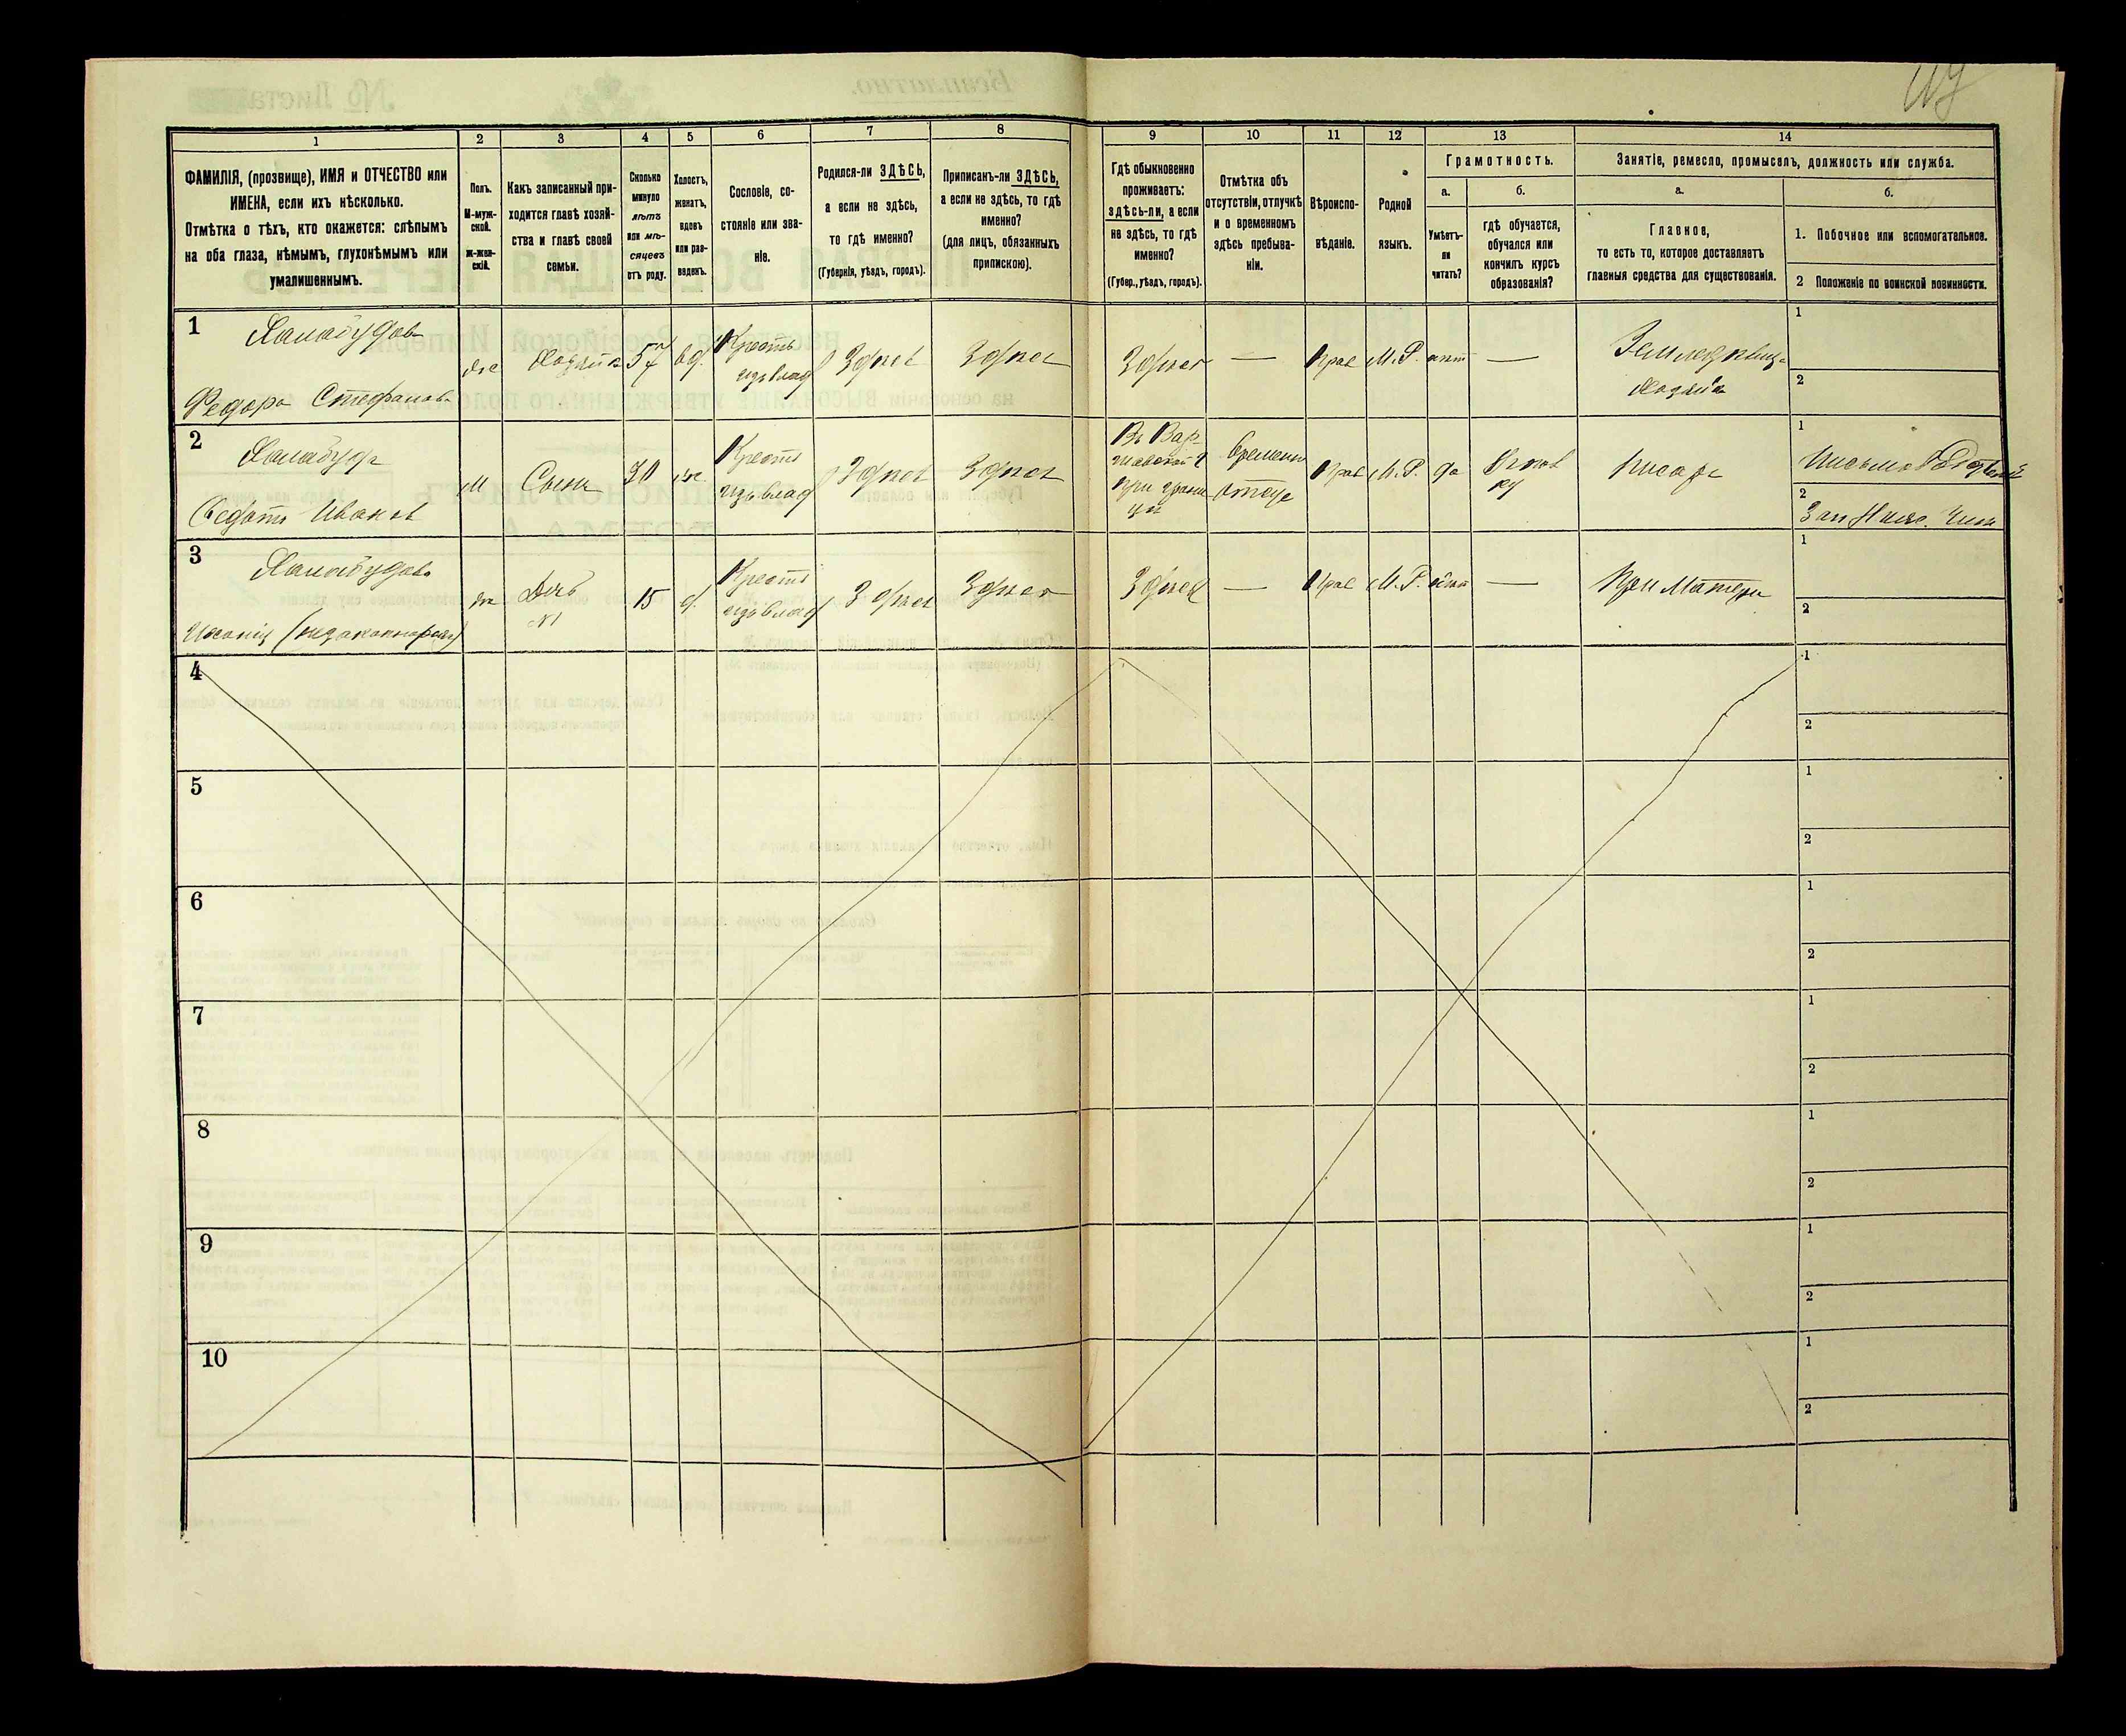 1
2
3
4
5
6
7
8
9
10
11
12
13
14
ФАМИЛІЯ, (прозвище), ИМЯ и ОТЧЕСТВО или
ИМЕНА, если ихъ нѣсколько.
Отмѣтка о тѣхъ, кто окажется: слѣпымъ
на оба глаза, нѣмымъ, глухонѣмымъ или
умалишеннымъ.
Полъ.
М-муж-
ской.
ж-жен-
скій.
Какъ записанный при-
ходится главѣ хозяй-
ства и главѣ своей
семьи.
Сколько
минуло
лѣтъ
или мѣ-
сяцевъ
отъ роду.
Холостъ,
женатъ,
вдовъ
или раз-
веденъ.
Сословіе, со-
стояніе или зва-
ніе.
Родился-ли ЗДѢСЬ,
а если не здѣсь,
то гдѣ именно?
(Губернія, уѣздъ, городъ).
Приписанъ-ли ЗДѢСЬ,
а если не здѣсь, то гдѣ
именно?
(для лицъ, обязанныхъ
припискою).
Гдѣ обыкновенно
проживаетъ:
здѣсь-ли, а если
не здѣсь, то гдѣ
именно?
(Губер., уѣздъ, городъ).
Отмѣтка объ
отсутствіи, отлучкѣ
и о временномъ
здѣсь пребыва-
ніи.
Вѣроиспо-
вѣданіе.
Родной
языкъ.
Грамотность.
а.
Умѣетъ-
ли
читать?
б.
гдѣ обучается,
обучался или
кончилъ курсъ
образованія?
Занятіе, ремесло, промыселъ, должность или служба.
а.
Главное,
то есть то, которое доставляетъ
главныя средства для существованія.
б.
1. Побочное или вспомогательное.
2 Положеніе по воинской повинности.
1
Федора Стефанов
же
Хозяйка
57
вд.
Крест
изъ влад
Здѣсь
Здѣсь
Здѣсь
—
Прав
М.Р.
нѣт
—
Хозяйка
1
2
2
Иванов
М
Сынъ
30
же.
Крест
изъ влад
Здѣсь
Здѣсь
Въ Вар-
шавской г
при грани
цы
Времен
Прав
М.Р.
да
Писарь
1
2
3
Халабудова
же
Дочь
№1
15
д.
Крест
изъ влад
Здѣсь
Здѣсь
Здѣсь
—
Прав
М.Р.
—
При Матери
1
2
4
1
2
5
1
2
6
1
2
7
1
2
8
1
2
9
1
2
10
1
2